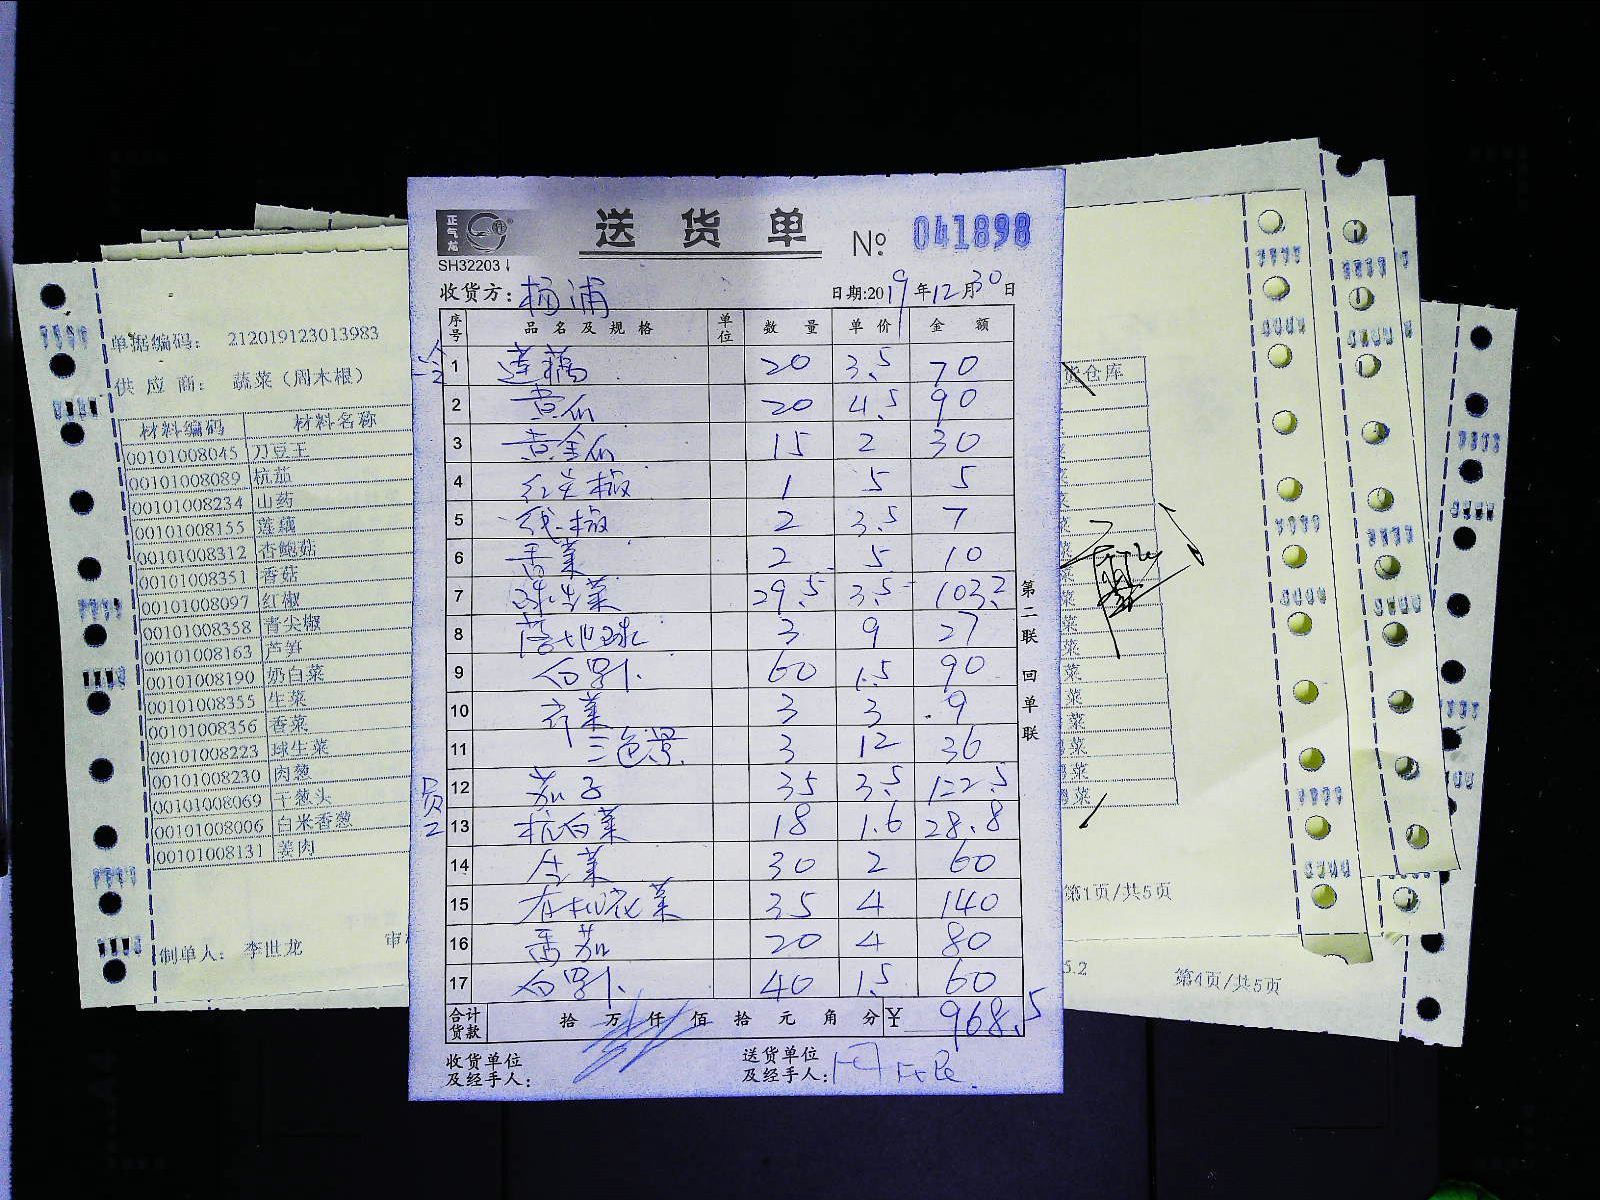 正气龙
SH32203
送货单
№ 041898
收货方：杨浦
日期:2019年12月30日
序号 品名及规格 单位 数量 单价 金额
1 莲藕 20 3.5 70
2 黄瓜 20 4.5 90
3 黄金瓜 15 2 30
4 红尖椒 1 5 5
5 线椒 2 3.5 7
6 香菜 2 5 10
7 球生菜 29.5 3.5 103.2
8 3 9 27
9 白萝卜 60 1.5 90
10 3 3 9
11 三色堇 3 12 36
12 茄子 35 3.5 122.5
13 杭白菜 18 1.6 28.8
14 30 2 60
15 有机花菜 35 4 140
16 番茄 20 4 80
17 白萝卜 40 1.5 60
合计货款 拾 万 仟 佰 拾 元 角 分 ¥ 968.5
收货单位及经手人：
送货单位及经手人：周木根
第二联 回单联
单据编码： 212019123013983
供应商： 蔬菜（周木根）
材料编码 材料名称
00101008045 刀豆王
00101008089 杭茄
00101008234 山药
00101008155 莲藕
00101008312 杏鲍菇
00101008351 香菇
00101008097 红椒
00101008358 青尖椒
00101008163 芦笋
00101008190 奶白菜
00101008355 生菜
00101008356 香菜
00101008223 球生菜
00101008230 肉葱
00101008069 干葱头
00101008006 白米香葱
00101008131 姜肉
制单人： 李世龙
审
货仓库
菜
菜
菜
菜
菜
菜
菜
菜
第1页/共5页
5.2
第4页/共5页